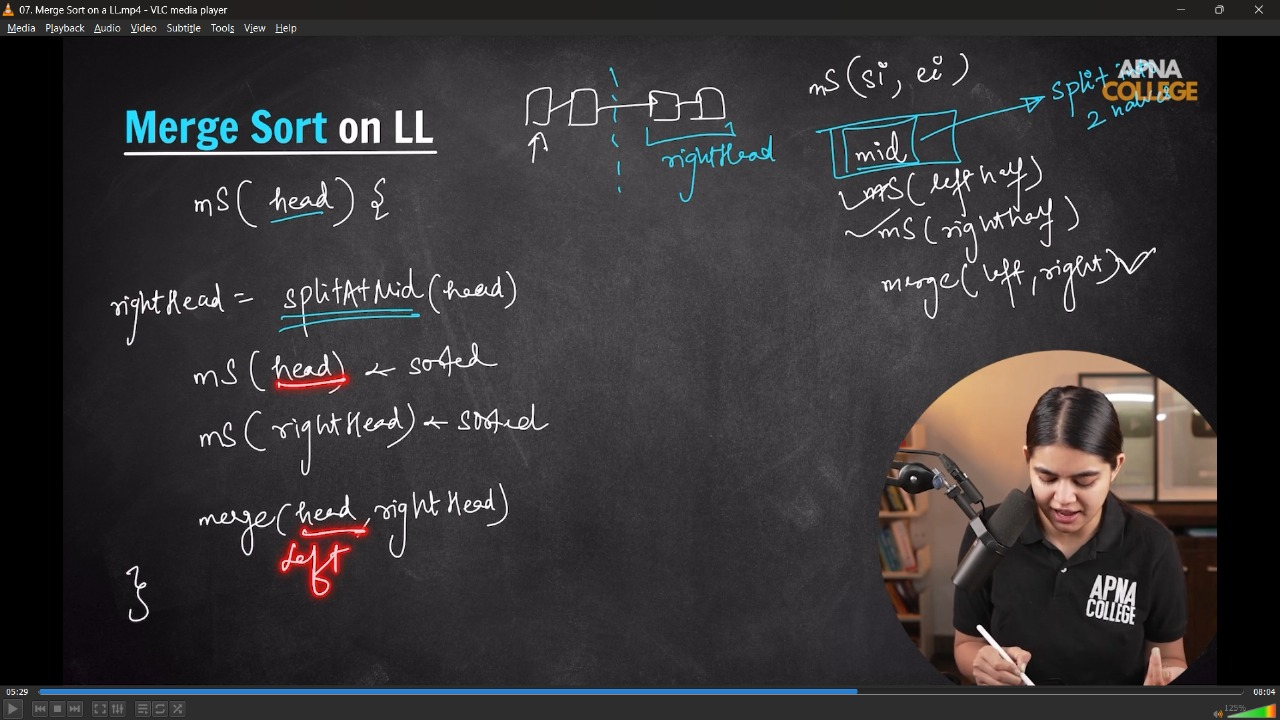 07. Merge Sort on a LL.mp4 - VLC media player
Media Playback Audio Video Subtitle Tools View Help
Merge Sort on LL
mS(head) {
rightHead = splitAtMid(head)
mS(head) ← sorted
mS(rightHead) ← sorted
merge(head, rightHead)
left
}
rightHead
mS(si, ei)
mid
split into
2 halves
mS(left half)
mS(right half)
merge(left, right)
APNA
COLLEGE
APNA
COLLEGE
05:29
08:04
125%